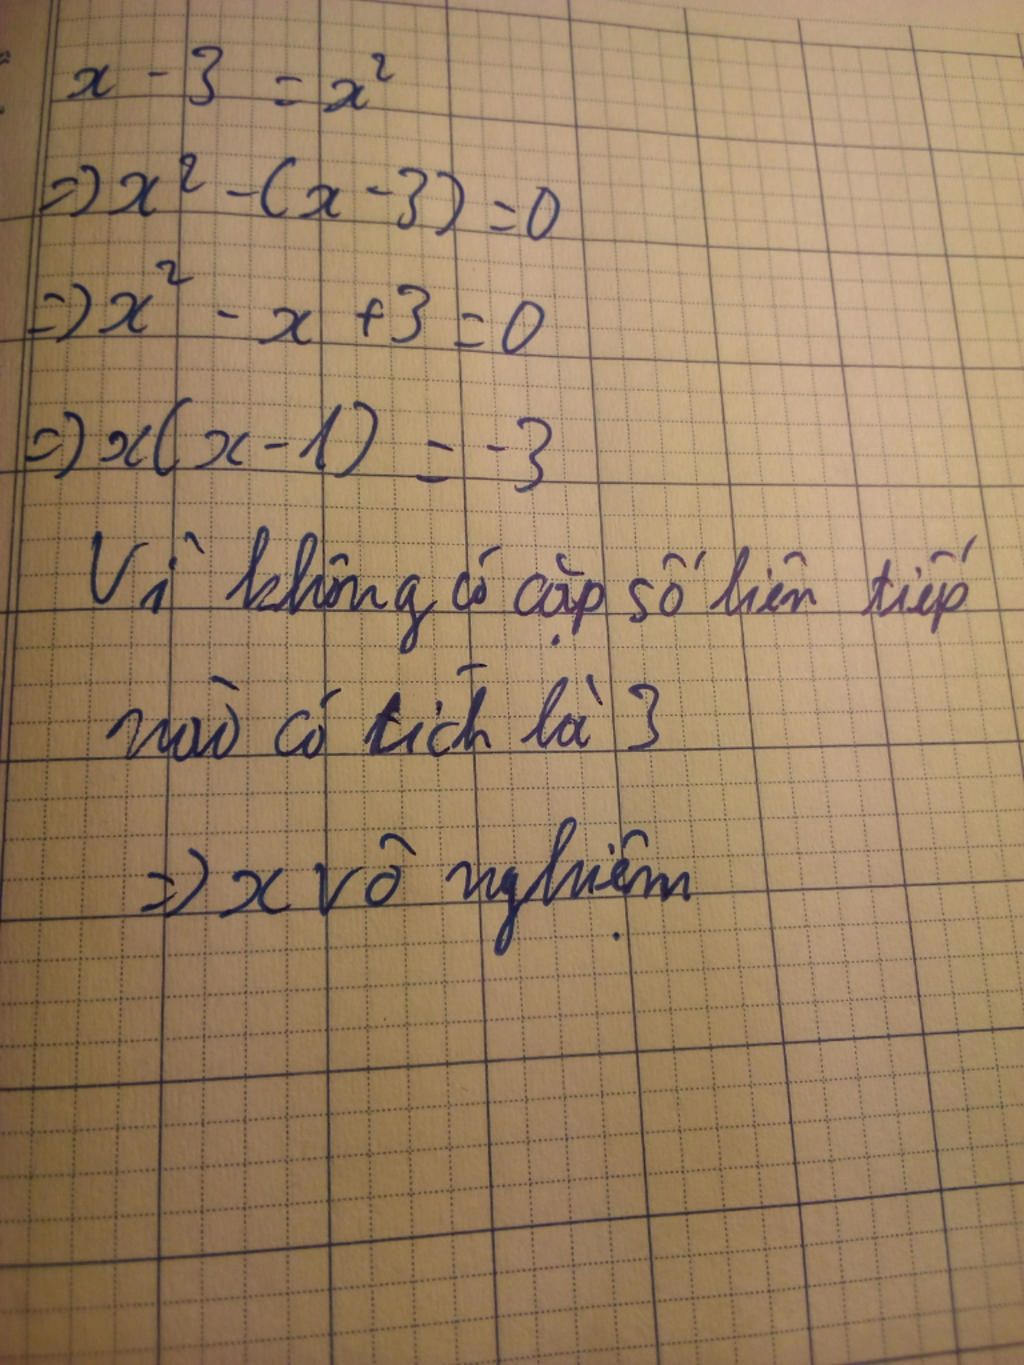 x - 3 = x²
=) x² - (x - 3) = 0
=) x² - x + 3 = 0
=) x(x - 1) = -3
Vì không có cặp số liên tiếp
nào có tích là 3
=) x vô nghiệm